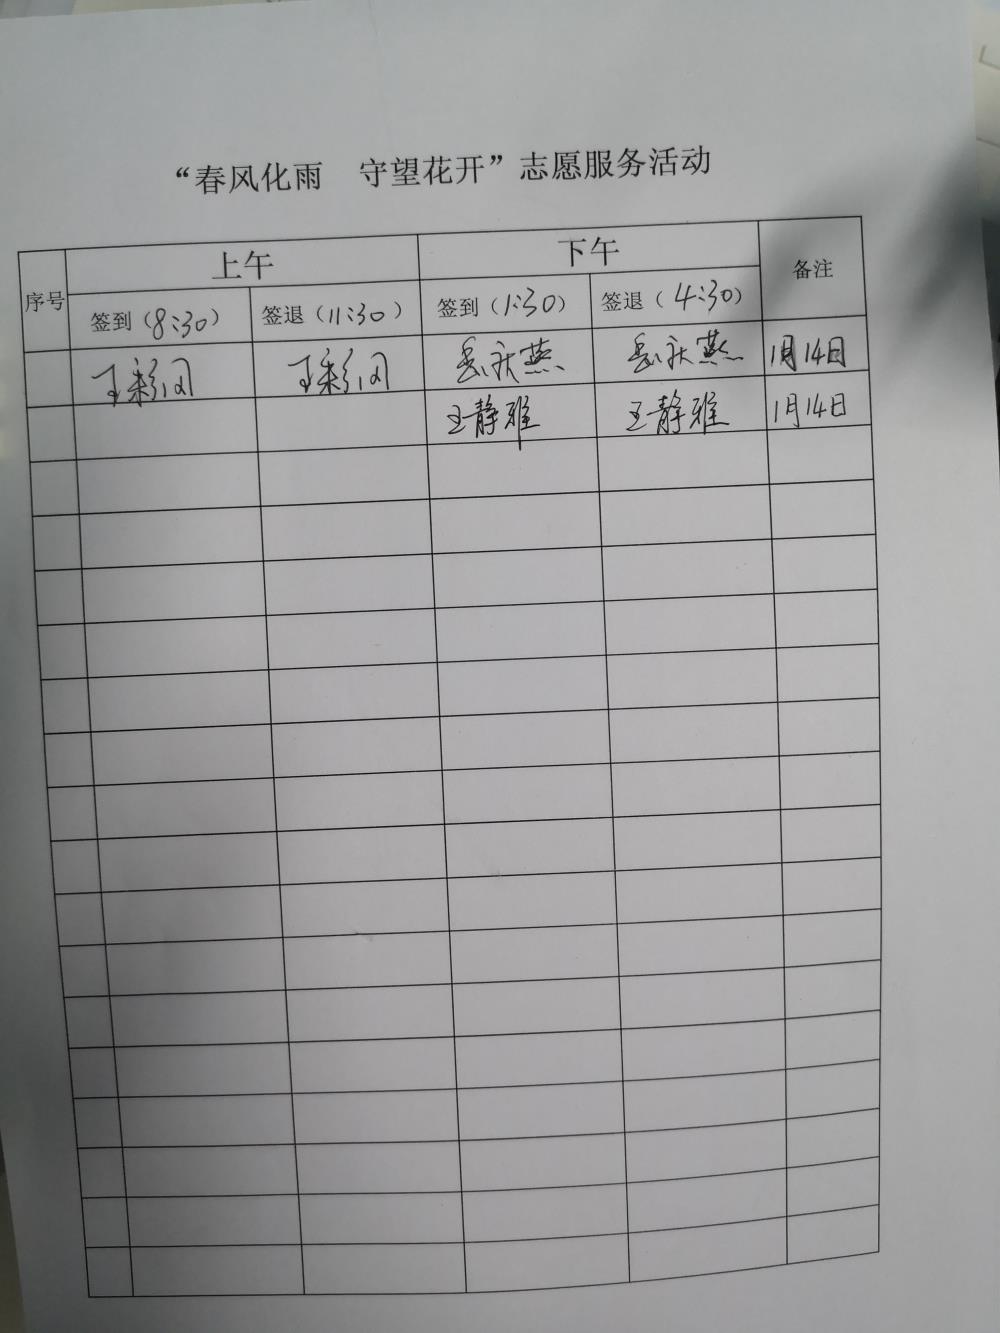 “春风化雨 守望花开”志愿服务活动
序号 上午 下午 备注
签到(8:30) 签退(11:30) 签到(1:30) 签退(4:30)
王彩闪 王彩闪 岳秋燕 岳秋燕 1月14日
王静雅 王静雅 1月14日